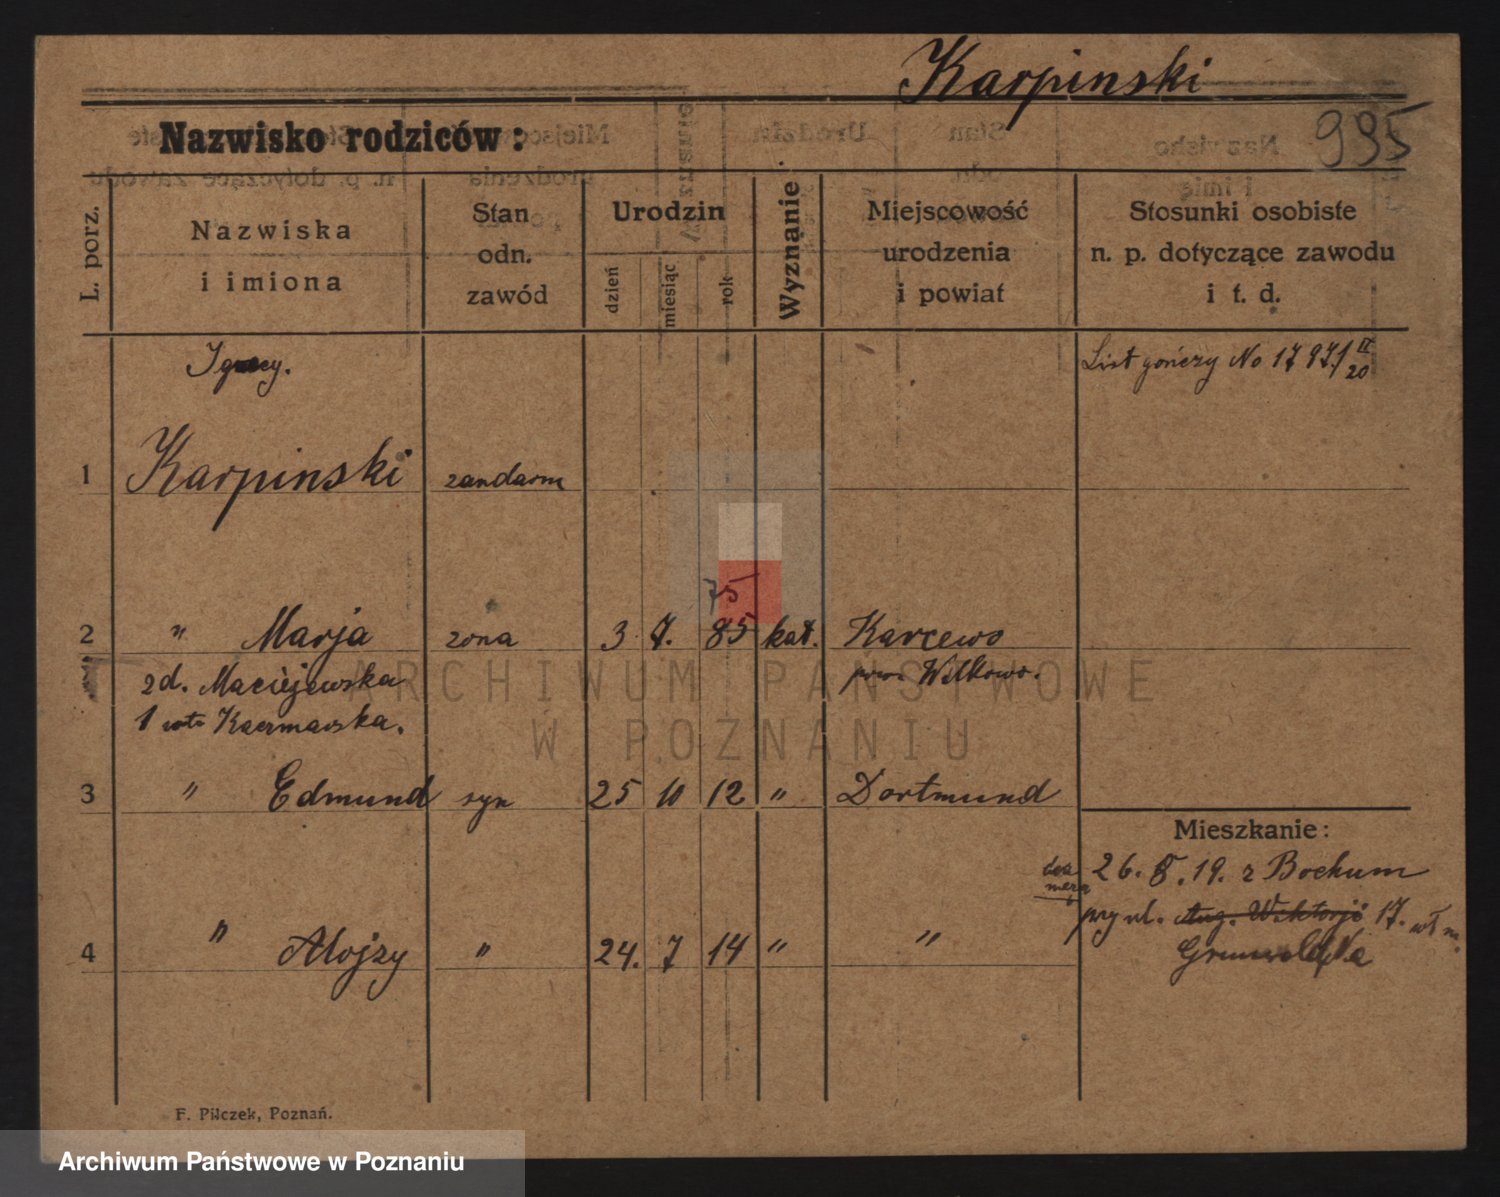 Karpinski
995
Nazwisko rodziców:
L. porz.
Nazwiska
i imiona
Stan
odn.
zawód
Urodzin
dzień
miesiąc
rok
Wyznanie
Miejscowość
urodzenia
i powiat
Stosunki osobiste
n. p. dotyczące zawodu
i t. d.
Ignacy.
List gończy No 1797/ II 20
1 Karpinski zandarm
75
2 " Marja zona 3 7. 85 kat. Karcewo
pow. Witkowo.
zd. Maciejewska
1 voto Kaczmarska.
3 " Edmund syn 25 10 12 " Dortmund
Mieszkanie:
26. 8. 19. z Bochum
przy ul. Aug. Wiktorji 17.
Grunwaldzka
4 " Alojzy " 24. 7 14 " "
F. Pilczek, Poznań.
ARCHIWUM PAŃSTWOWE
W POZNANIU
Archiwum Państwowe w Poznaniu